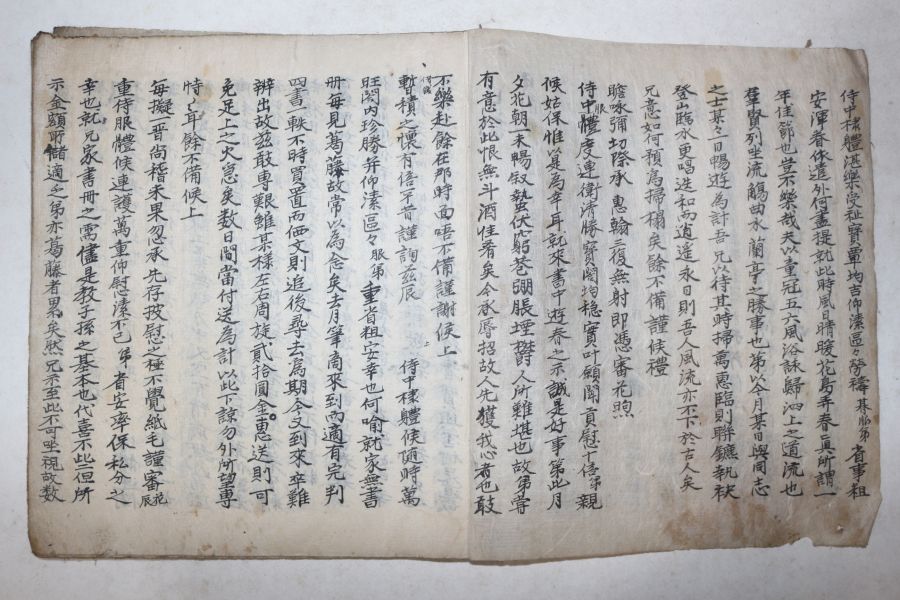 侍中棣軆湛樂學祉寶覃均吉仰溸區々勞禱碁服弟省事粗
安渾眷依遣外何盡提就此時風日晴暖花鳥弄春眞所謂一
年佳節也豈不樂哉夫以童冠五六風浴詠歸泗上之道流也
羣賢列坐流觴曲水蘭亭之勝事也弟以今月某日與同志
之士某々一日暢遊為計吾兄以待其時掃萬惠臨則聯鑣執袂
登山臨水更唱迭和而逍遙永日則吾人風流亦不下於古人矣
兄意如何預為掃榻矣餘不備謹候禮
瞻咏彌切際承惠翰三復無射即憑審花煦
侍中服軆度連衛淸勝寶閤均穩實叶願聞貢慰十倍弟親
候姑保惟以是為幸耳就來書中遊春之示誠是好事弟此月
夕花朝一未暢叙蟄伏窮巷弸脹堙欝人所難堪也故弟嘗
有意於此恨無斗酒佳肴矣今承辱招故人先獲我心者也敢
不樂赴餘在那時面唔不備謹謝候上
暫積之懷有倍不昔謹詢玆辰侍中棣軆候隨時萬
旺閤內珍勝幷仰溸區々服弟重省粗安幸也何喻就家無書
冊每見葛藤故常以為念矣去月筆商來到而適有完判
四書一帙不時買置而価文則追後尋去為期今又到來卒難
辨出故玆敢專艱某樣左右周旋貳拾圓金惠送則可
免足上之火急矣數日間當付送為計以此下諒勿外所望專
恃々耳餘不備候上
每擬晋尚稽未果忽承先存披慰之極不覺紙毛謹審花辰
重侍服軆候連護萬重仰慰溸不已弟省安率保私分之
幸也就兄家書冊之需儘是敎子孫之基本也代喜不啻但所
示金額所儲適乏弟亦葛藤者累矣然兄示至此不可坐視故數